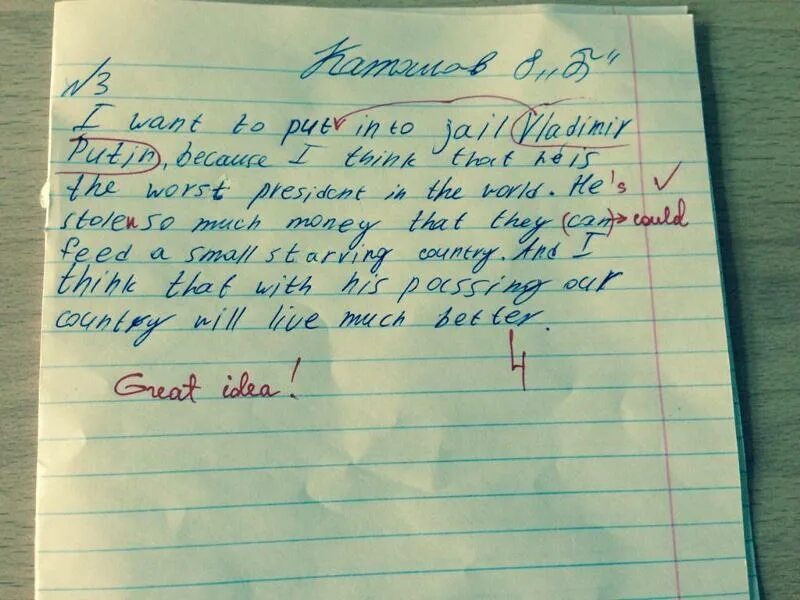 Каташов 8 „Б"
№3
I want to put into jail Vladimir
Putin, because I think that he is
the worst president in the world. He's ✓
stolen so much money that they (can) → could
feed a small starving country. And I
think that with his passing our
country will live much better.
Great idea! 4